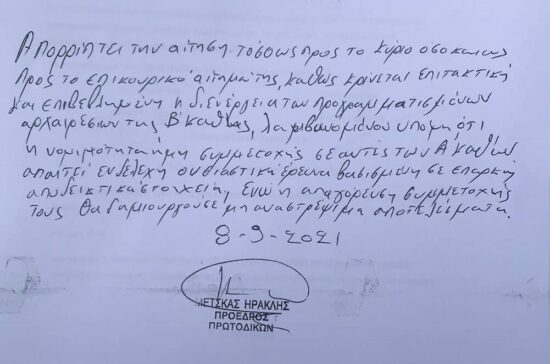 Απορρίπτει την αίτηση τόσο ως προς το κύριο όσο και ως
προς το επικουρικό αίτημά της, καθώς κρίνεται επιτακτική
και επιβεβλημένη η διενέργεια των προγραμματισμένων
αρχαιρεσιών της Β΄ Καθ/ας, λαμβανομένου υπόψη ότι
η νομιμότητα ή μη συμμετοχής σε αυτές των Α΄ καθ'ων
απαιτεί ενδελεχή ουσιαστική έρευνα βασισμένη σε επαρκή
αποδεικτικά στοιχεία, ενώ η απαγόρευση συμμετοχής
τους θα δημιουργούσε μη αναστρέψιμα αποτελέσματα.
8-9-2021
ΜΕΤΣΚΑΣ ΗΡΑΚΛΗΣ
ΠΡΟΕΔΡΟΣ
ΠΡΩΤΟΔΙΚΩΝ